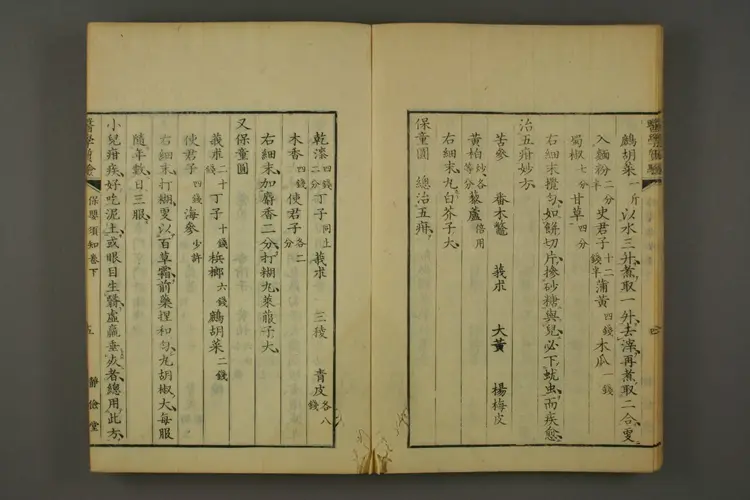 鷓胡菜一斤 以水三升煮取一升去滓再煮取二合叓
入麵粉二分半 史君子十二錢半 蒲黃四錢 木瓜一錢
蜀椒七分 甘草四分
右細末攪勻如餅切片摻砂糖與兒必下蚘虫而疾愈
治五疳妙方
苦參 番木鼈 莪朮 大黃 楊梅皮
黃柏炒各等分 藜蘆倍用
右細末丸白芥子大
保童圓 總治五疳
乾漆四錢二分 丁子同上 莪朮 三稜 青皮各八錢
木香四錢 使君子各二分
右細末加麝香二分打糊丸萊菔子大
又保童圓
莪朮二十錢 丁子十錢 梹榔六錢 鷓胡菜二錢
使君子四錢 海參少許
右細末打糊叓以百草霜前藥捏和勻丸胡椒大每服
隨年數日三服
小兒疳疾好吃泥土或眼目生翳虛羸垂死者總用此方
保嬰須知卷下 五 靜儉堂